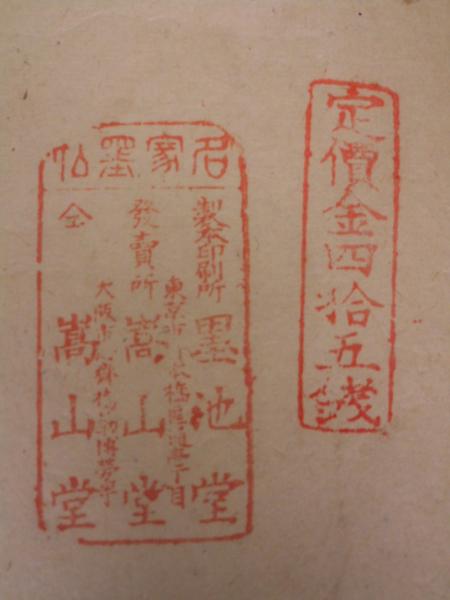 定價金四拾五錢
名家墨帖
製本印刷所 墨池堂
東京市日本橋區通三丁目
發賣所 嵩山堂
大阪市心齋橋筋博勞町
仝 嵩山堂